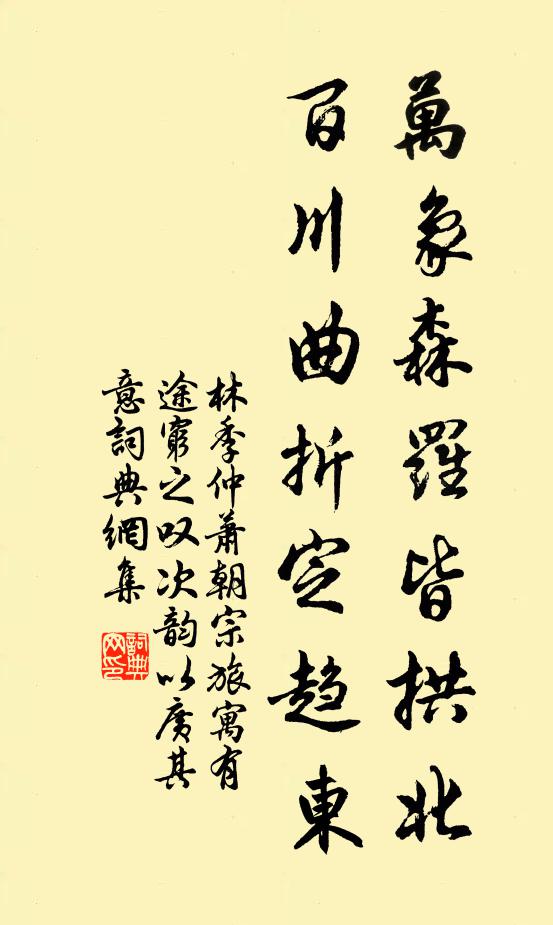 萬象森羅皆拱北
百川曲折定趋東
林季仲蕭朝宗旅寓有
途窮之叹次韵以廣其
意詞典網集
詞典
网